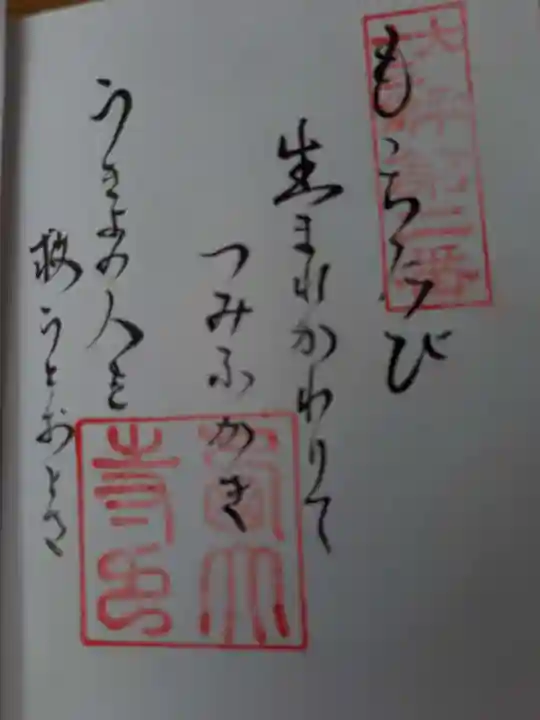 もゝちたび
生まれかわりて
つみふかき
うきよの人を
救うとおとさ